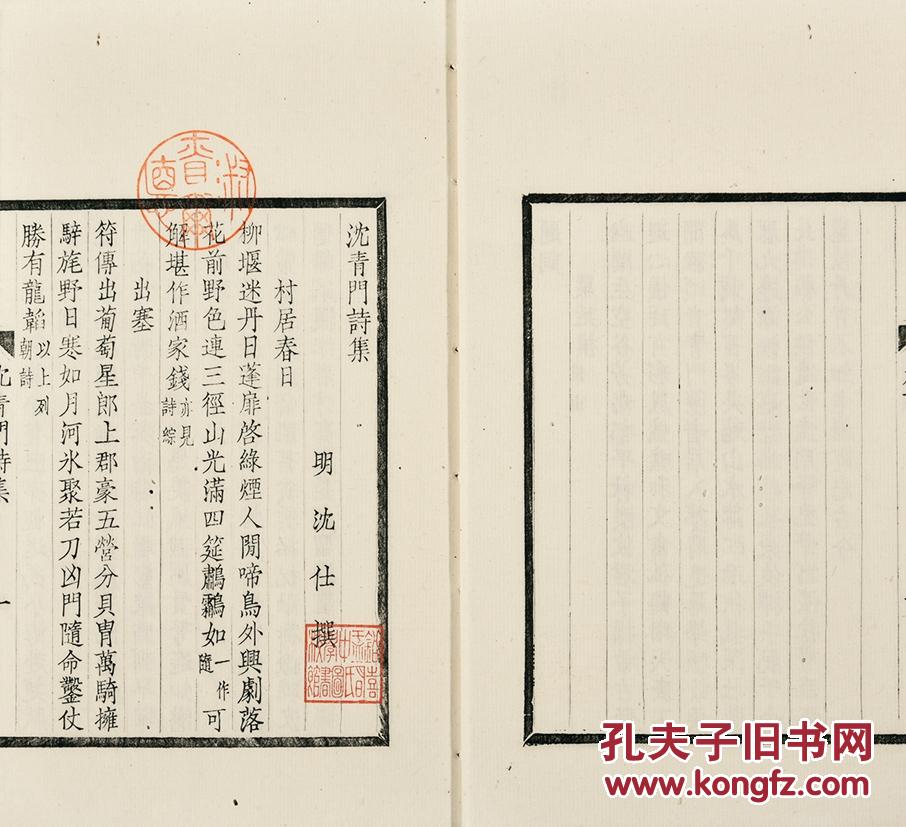 沈青門詩集
明沈仕撰
村居春日
柳堰迷丹日蓬扉啓綠煙人閒啼鳥外興劇落
花前野色連三徑山光滿四筵鸕鷀如一作隨可
解堪作酒家錢亦見詩綜
出塞
符傳出葡萄星郎上郡豪五營分貝冑萬騎擁
騂旄野日寒如月河氷聚若刀凶門隨命鑿仗
勝有龍韜以上列朝詩
沈青門詩集
一
孔夫子旧书网
www.kongfz.com